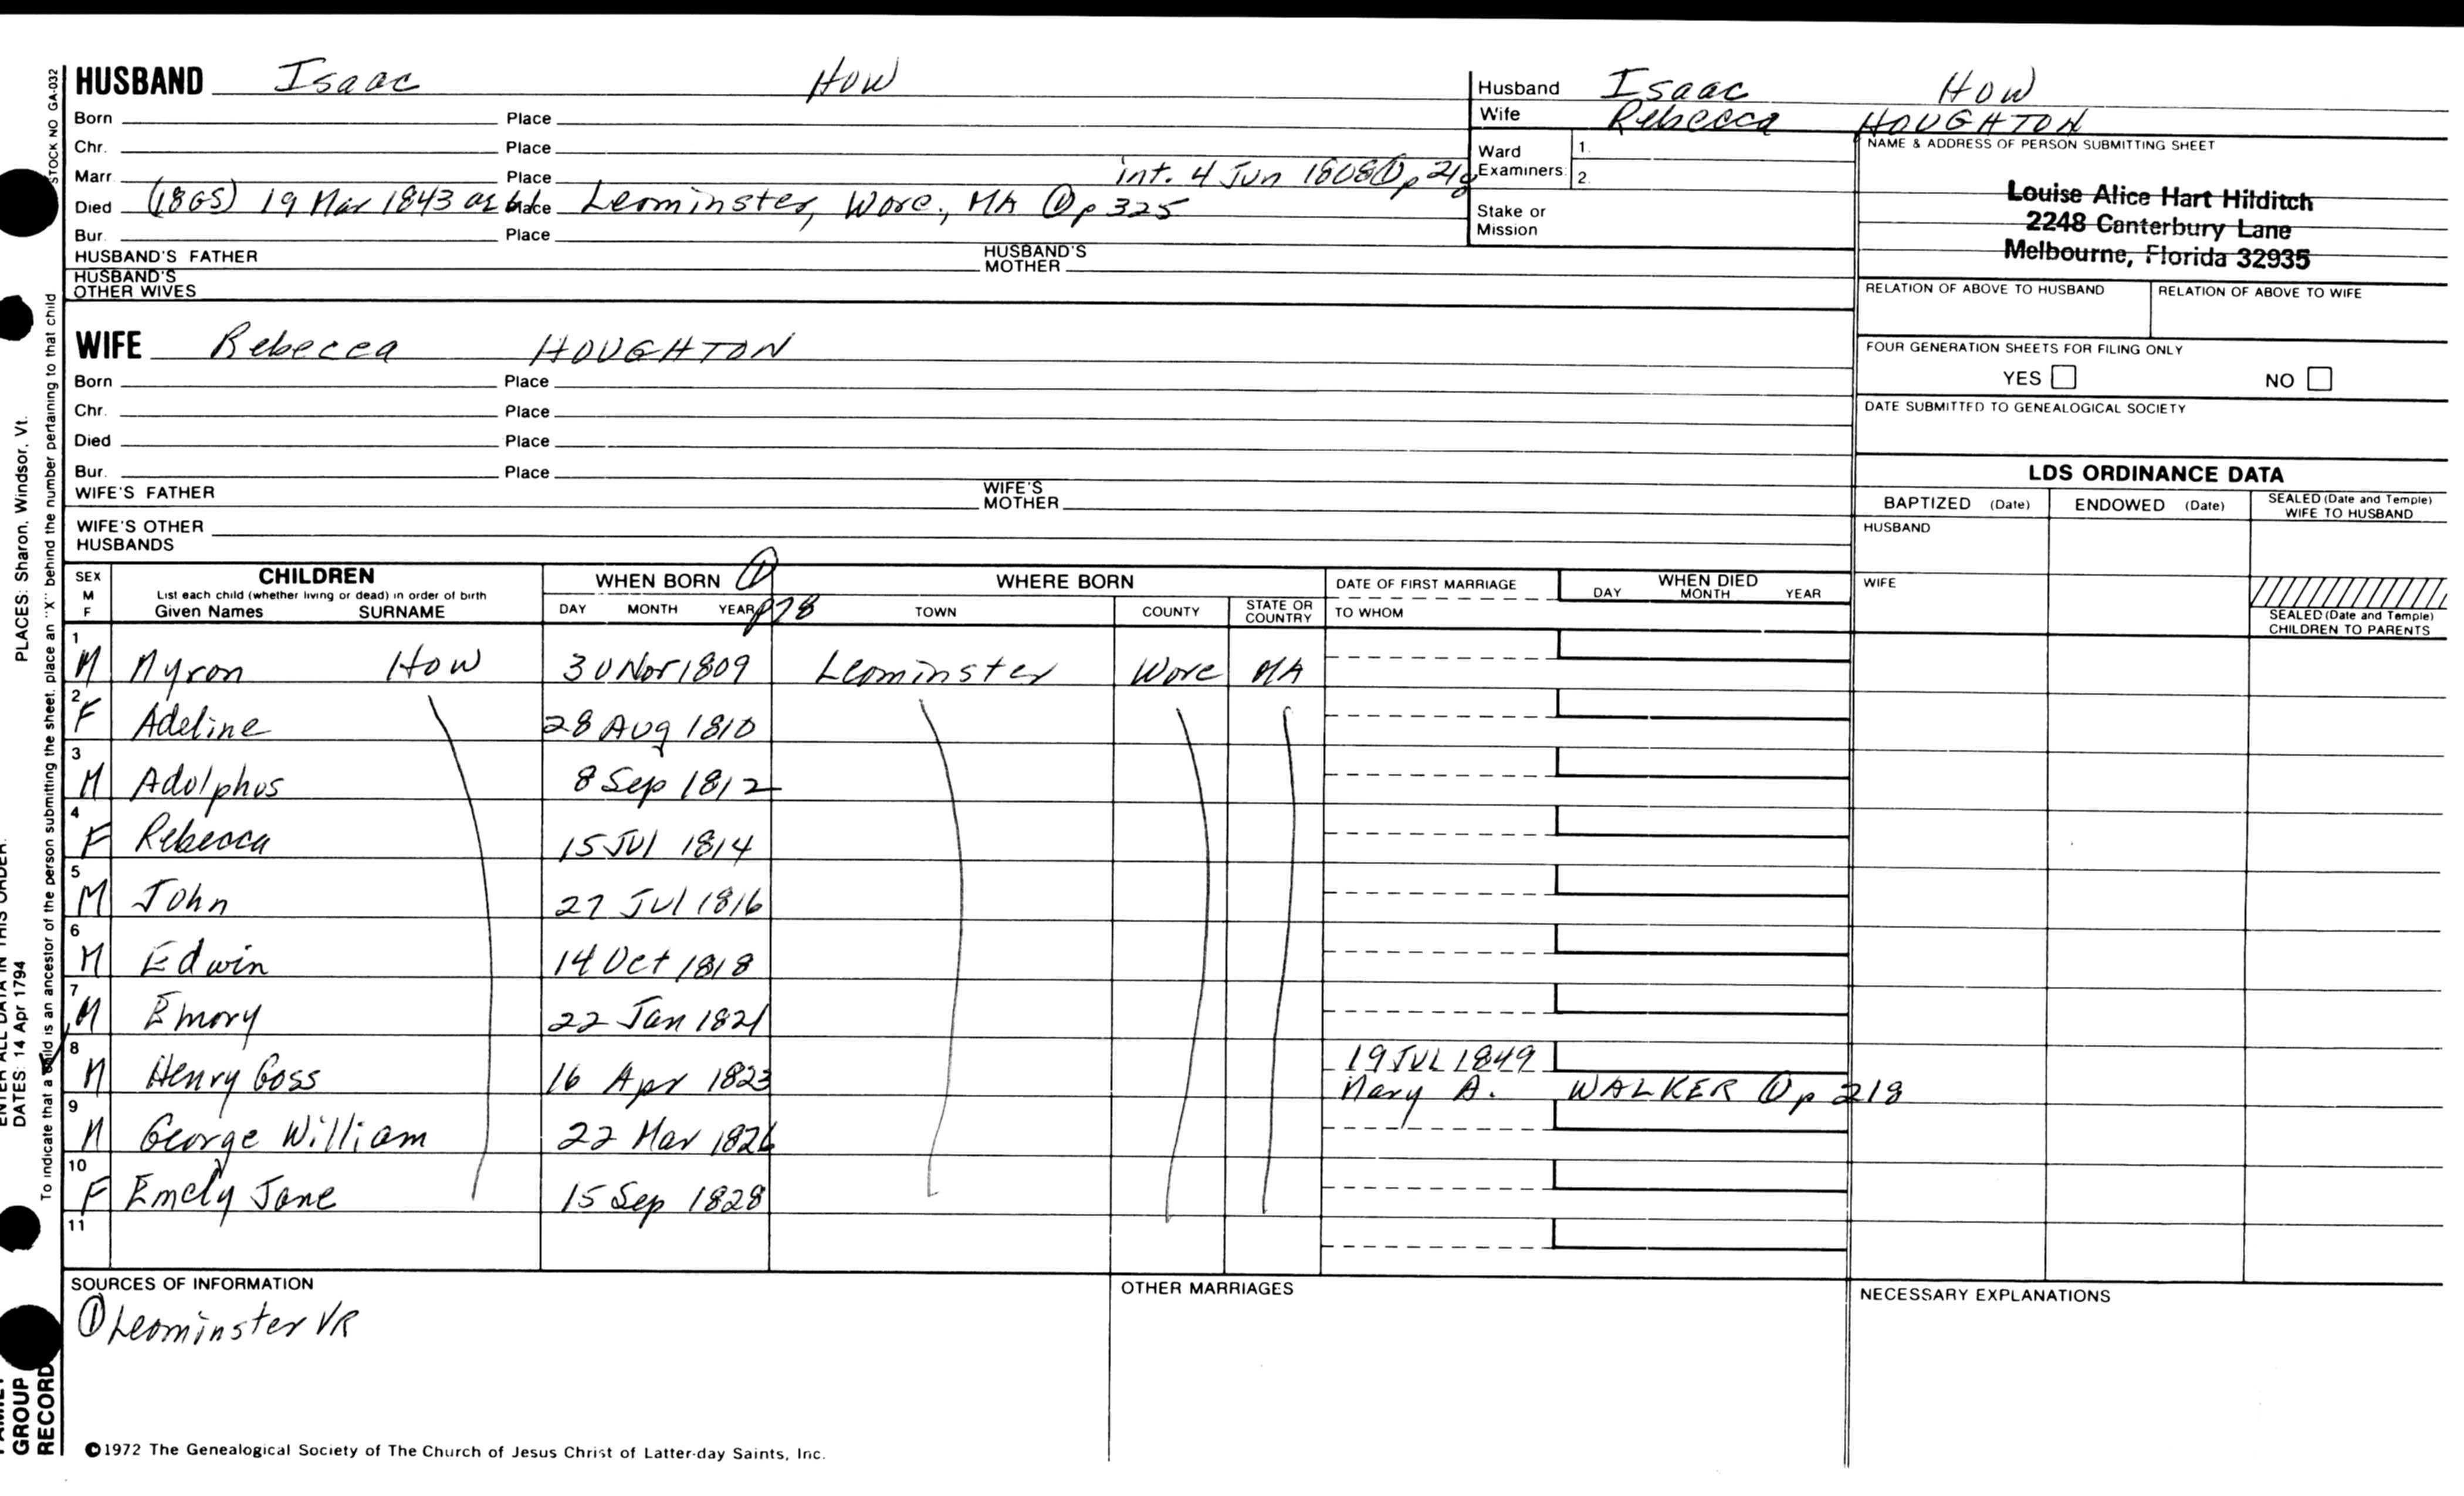 HUSBAND Isaac How
Born Place
Chr. Place
Marr. Place int. 4 Jun 1808 ① p 218
Died (1865) 19 Mar 1843 Place Leominster, Worc., MA ① p 325
Bur. Place
HUSBAND'S FATHER HUSBAND'S MOTHER
HUSBAND'S OTHER WIVES
WIFE Rebecca HOUGHTON
Born Place
Chr. Place
Died Place
Bur. Place
WIFE'S FATHER WIFE'S MOTHER
WIFE'S OTHER HUSBANDS
Husband Isaac How
Wife Rebecca HOUGHTON
Ward Examiners: 1. 2.
Stake or Mission
NAME & ADDRESS OF PERSON SUBMITTING SHEET
Louise Alice Hart Hilditch
2248 Canterbury Lane
Melbourne, Florida 32935
RELATION OF ABOVE TO HUSBAND RELATION OF ABOVE TO WIFE
FOUR GENERATION SHEETS FOR FILING ONLY
YES NO
DATE SUBMITTED TO GENEALOGICAL SOCIETY
LDS ORDINANCE DATA
BAPTIZED (Date) ENDOWED (Date) SEALED (Date and Temple) WIFE TO HUSBAND
HUSBAND
WIFE
SEALED (Date and Temple) CHILDREN TO PARENTS
SEX M F CHILDREN WHEN BORN ① p28 WHERE BORN DATE OF FIRST MARRIAGE WHEN DIED
List each child (whether living or dead) in order of birth
Given Names SURNAME DAY MONTH YEAR TOWN COUNTY STATE OR COUNTRY TO WHOM DAY MONTH YEAR
1 M Myron How 30 Nov 1809 Leominster Worc MA
2 F Adeline 28 Aug 1810
3 M Adolphus 8 Sep 1812
4 F Rebecca 15 Jul 1814
5 M John 27 Jul 1816
6 M Edwin 14 Oct 1818
7 M Emory 22 Jan 1821
8 M Henry Goss 16 Apr 1823 19 JUL 1849
Mary A. WALKER ① p 218
9 M George William 22 Mar 1826
10 F Emely Jane 15 Sep 1828
11
SOURCES OF INFORMATION
① Leominster VR
OTHER MARRIAGES
NECESSARY EXPLANATIONS
©1972 The Genealogical Society of The Church of Jesus Christ of Latter-day Saints, Inc.
STOCK NO GA-032
To indicate that a child is an ancestor of the person submitting the sheet, place an "X" behind the number pertaining to that child
PLACES: Sharon, Windsor, Vt.
ENTER ALL DATA IN THIS ORDER:
DATES: 14 Apr 1794
FAMILY GROUP RECORD